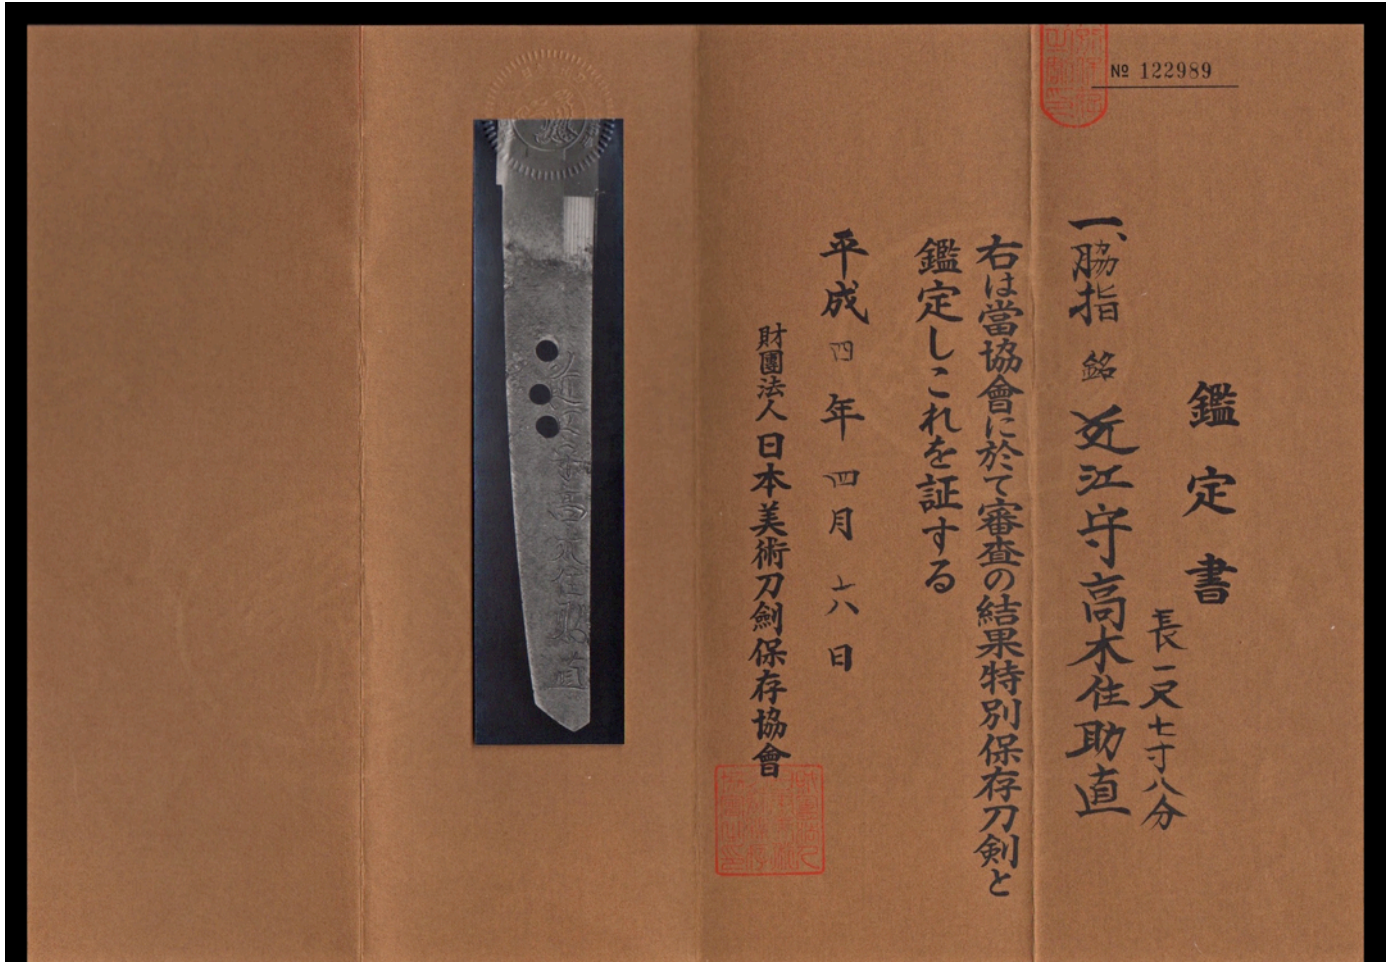 № 122989
鑑定書
長一尺七寸八分
一、脇指 銘 近江守高木住助直
右は當協會に於て審査の結果特別保存刀剣と
鑑定しこれを証する
平成四年四月六日
財團法人日本美術刀劍保存協會
近江守高木住助直